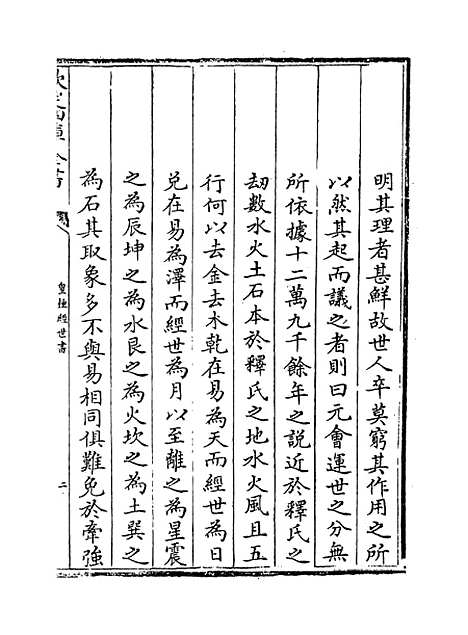 明其理者甚鮮故世人卒莫窮其作用之所
以然其起而議之者則曰元會運世之分無
所依據十二萬九千餘年之説近於釋氏之
劫數水火土石本於釋氏之地水火風且五
行何以去金去木乾在易為天而經世為日
兌在易為澤而經世為月以至離之為星震
之為辰坤之為水艮之為火坎之為土巽之
為石其取象多不與易相同俱難免於牽強
欽定四庫全書
皇極經世書
二